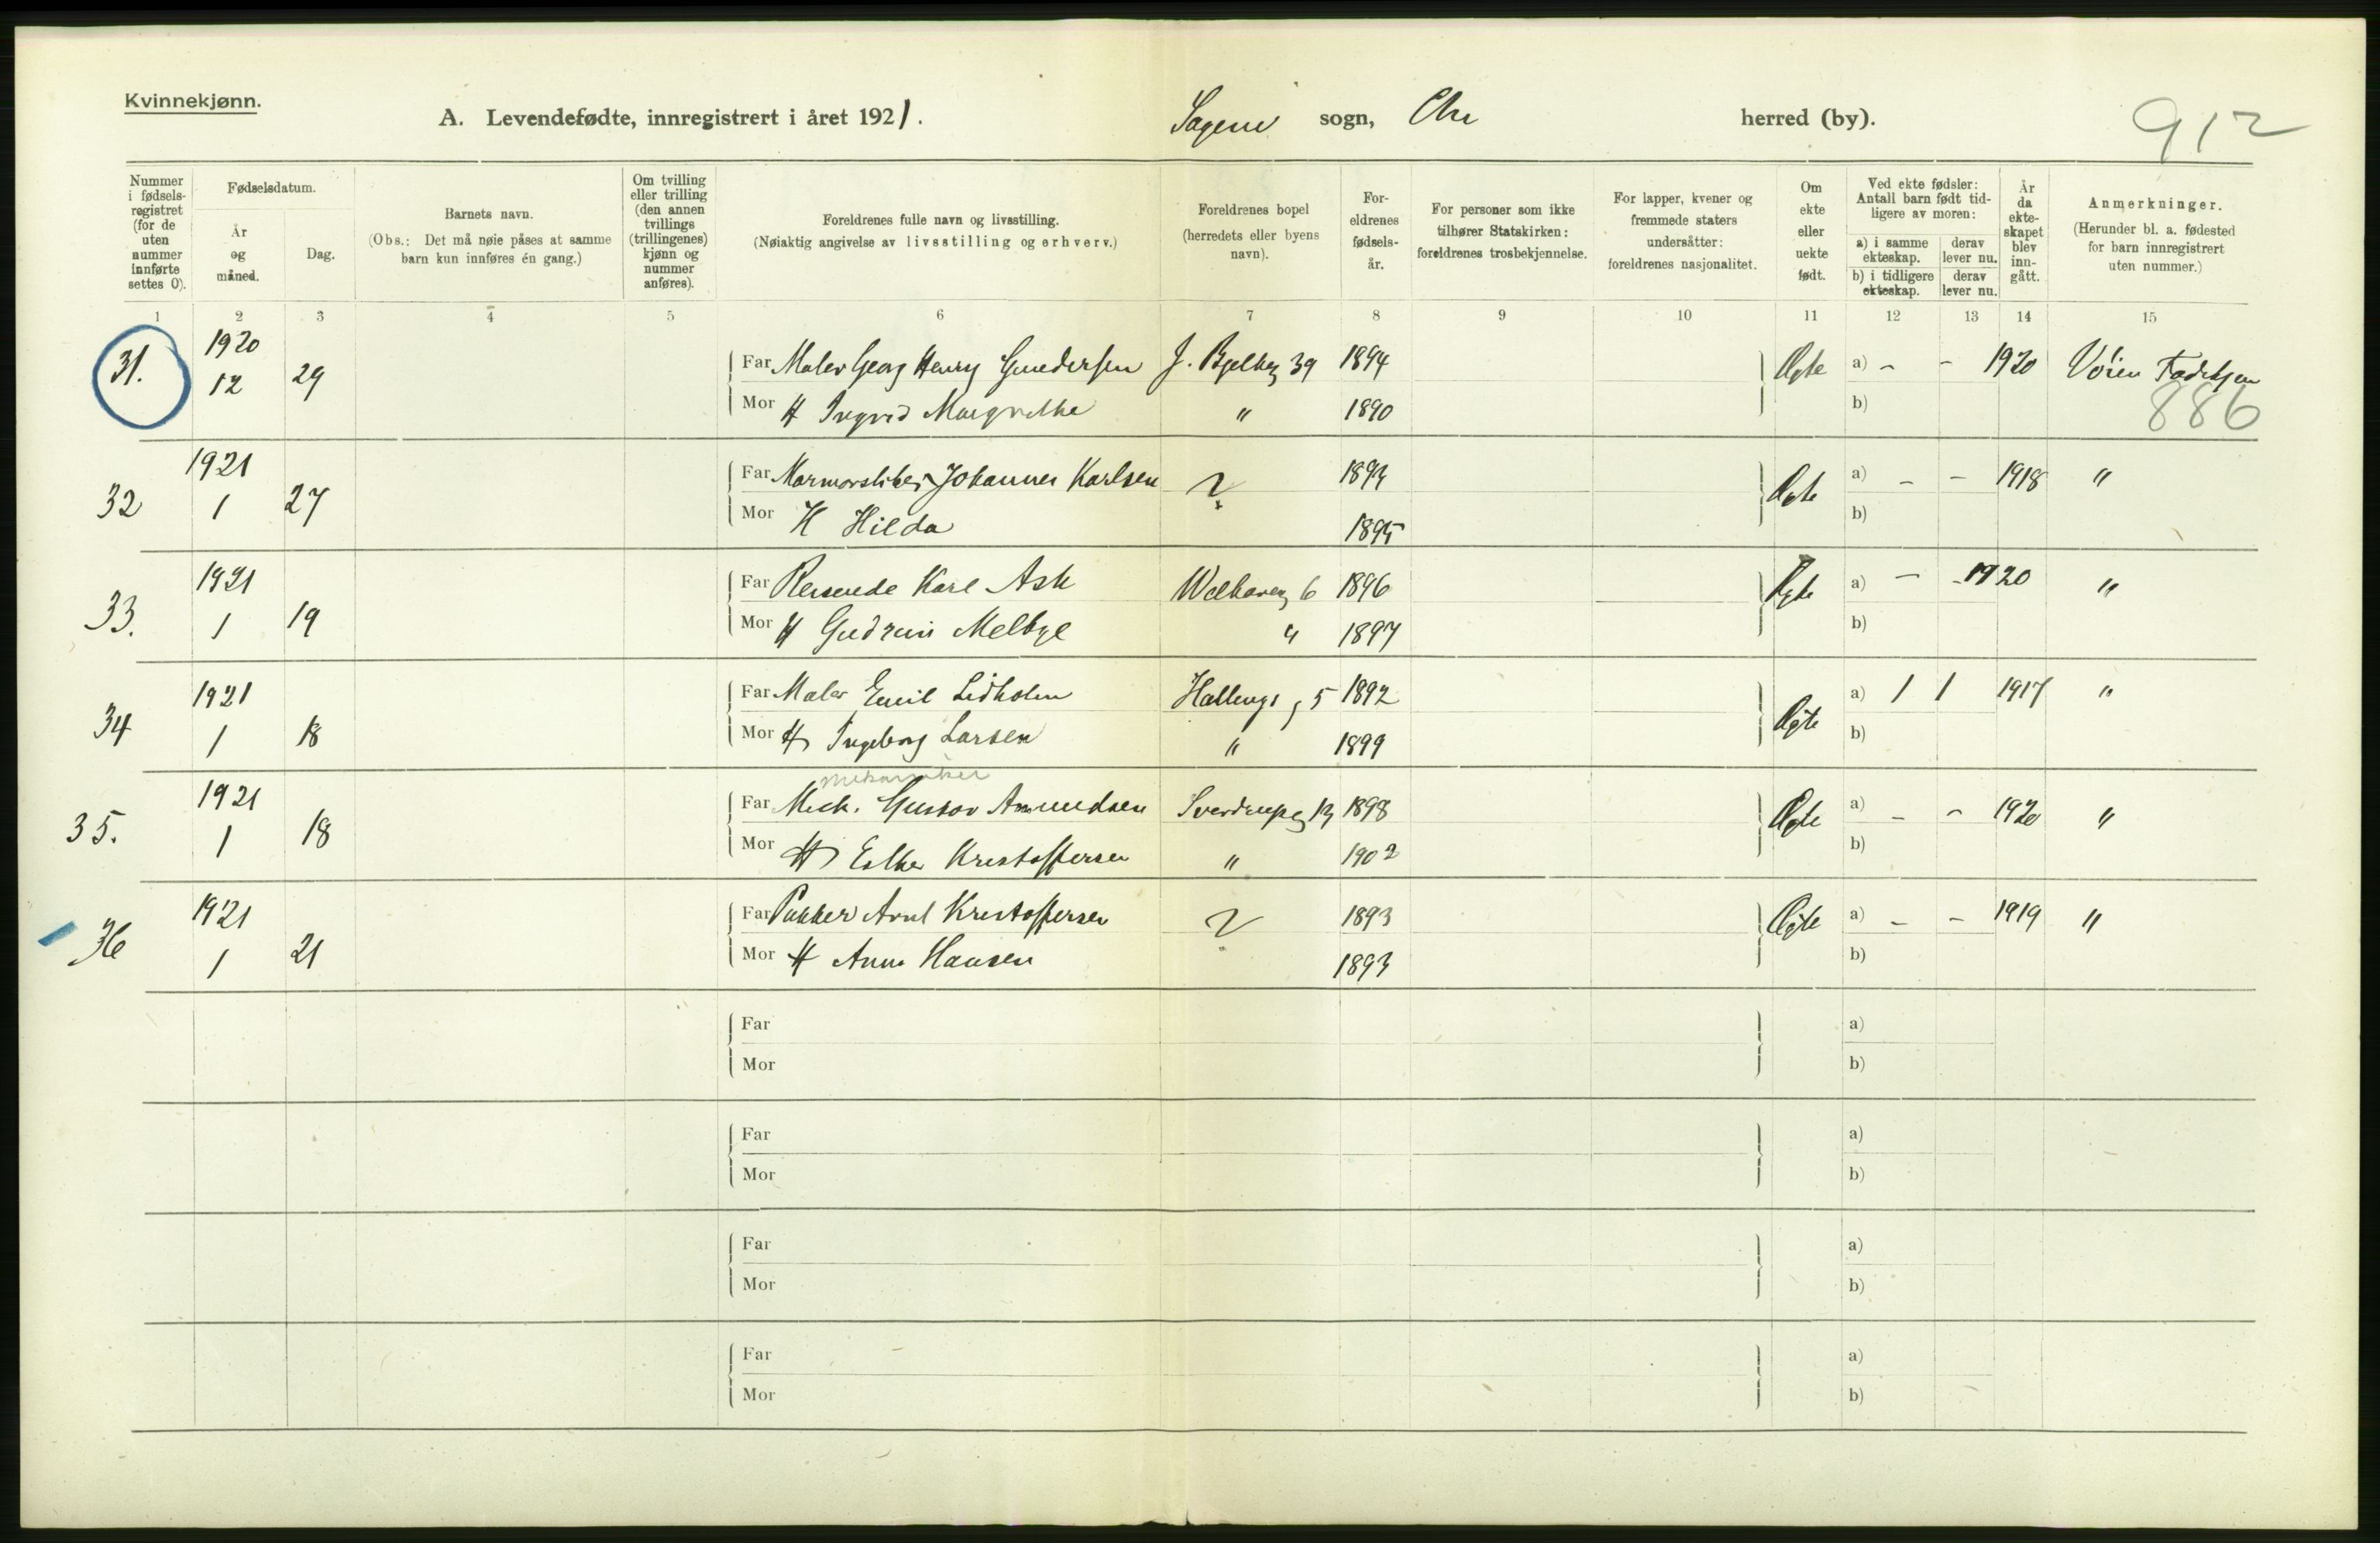 Kvinnekjønn.
A. Levendefødte, innregistrert i året 1921. Sagene sogn, Chr herred (by). 912
Nummer i fødsels-registret (for de uten nummer innførte settes 0).
Fødselsdatum.
År og måned.
Dag.
Barnets navn.
(Obs.: Det må nøie påses at samme barn kun innføres én gang.)
Om tvilling eller trilling (den annen tvillings (trillingenes) kjønn og nummer anføres).
Foreldrenes fulle navn og livsstilling.
(Nøiaktig angivelse av livsstilling og erhverv.)
Foreldrenes bopel (herredets eller byens navn).
For-eldrenes fødsels-år.
For personer som ikke tilhører Statskirken: foreldrenes trosbekjennelse.
For lapper, kvener og fremmede staters undersåtter: foreldrenes nasjonalitet.
Om ekte eller uekte født.
Ved ekte fødsler: Antall barn født tid-ligere av moren:
a) i samme ekteskap.
derav lever nu.
b) i tidligere ekteskap.
derav lever nu.
År da ekte-skapet blev inn-gått.
Anmerkninger.
(Herunder bl. a. fødested for barn innregistrert uten nummer.)
1 2 3 4 5 6 7 8 9 10 11 12 13 14 15
31. 1920 12 29 Far Maler Georg Henry Gundersen J. Bjelkeg 39 1894 Ægte a) - - 1920 Vöien Fødehjem
Mor H Ingrid Margrethe " 1890 b) 886
32 1921 1 27 Far Marmorsliber Johannes Karlsen ? 1894 Ægte a) - - 1918 "
Mor H Hilda 1895 b)
33. 1921 1 19 Far Reisende Karl Ask Welhaveng 6 1896 Ægte a) - - 1920 "
Mor H Gudrun Melbye " 1897 b)
34 1921 1 18 Far Maler Emil Lidholm Hallings g 5 1892 Ægte a) 1 1 1917 "
Mor H Ingeborg Larsen " 1899 b)
mekaniker
35. 1921 1 18 Far Mek. Gustav Amundsen Sverdrupsg 13 1898 Ægte a) - - 1920 "
Mor H Esther Kristoffersen " 1902 b)
36 1921 1 21 Far Pakker Arnt Kristoffersen ? 1893 Ægte a) - - 1919 "
Mor H Anna Hansen 1893 b)
Far a)
Mor b)
Far a)
Mor b)
Far a)
Mor b)
Far a)
Mor b)